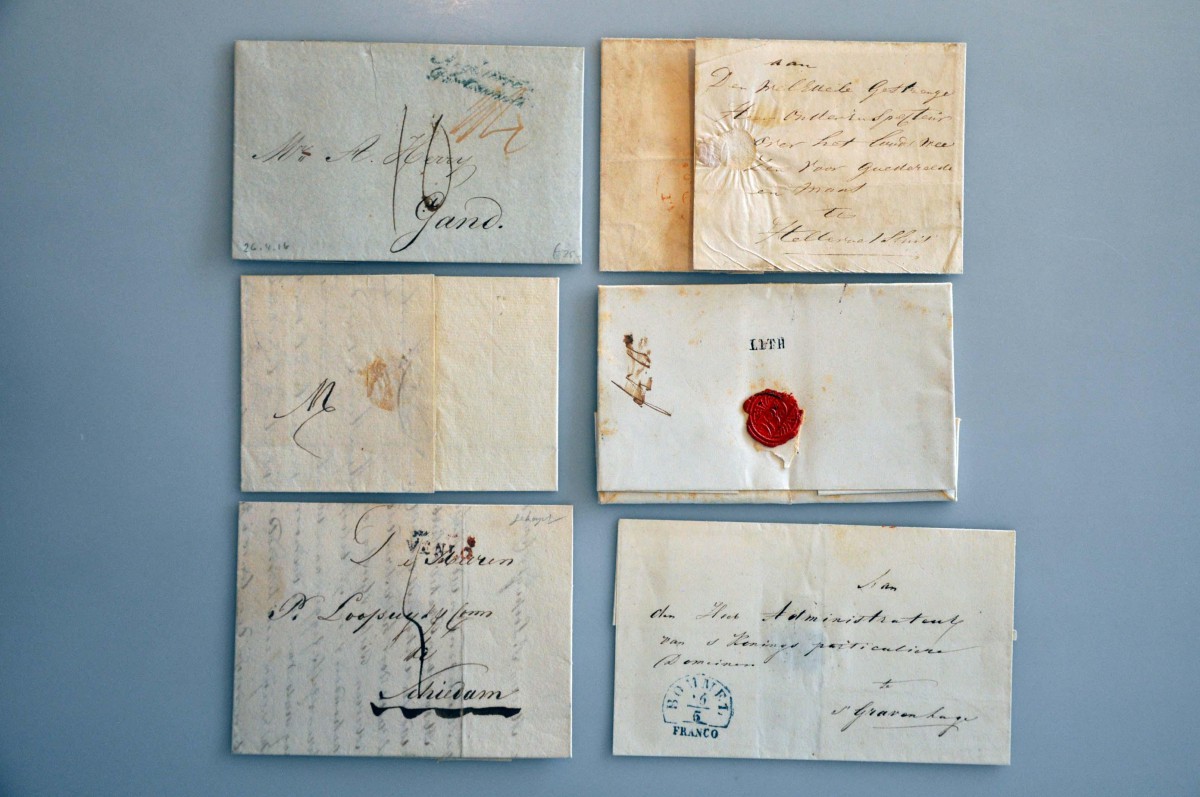 Mr A. Herry
16
Gand.
26.4.16
aan
Den Wel Edele Gestrenge
Heer Onder Inspecteur
over het
den voor Goederede
en Maas
te
Hellevoet Sluis
LITH
VENLO
De Heeren
P. Loopuyt & Comp
te
Schiedam
Aan
den Heer Administrateur
van s Konings particuliere
Domeinen
te
s Gravenhage
BOMMEL
6
5
FRANCO